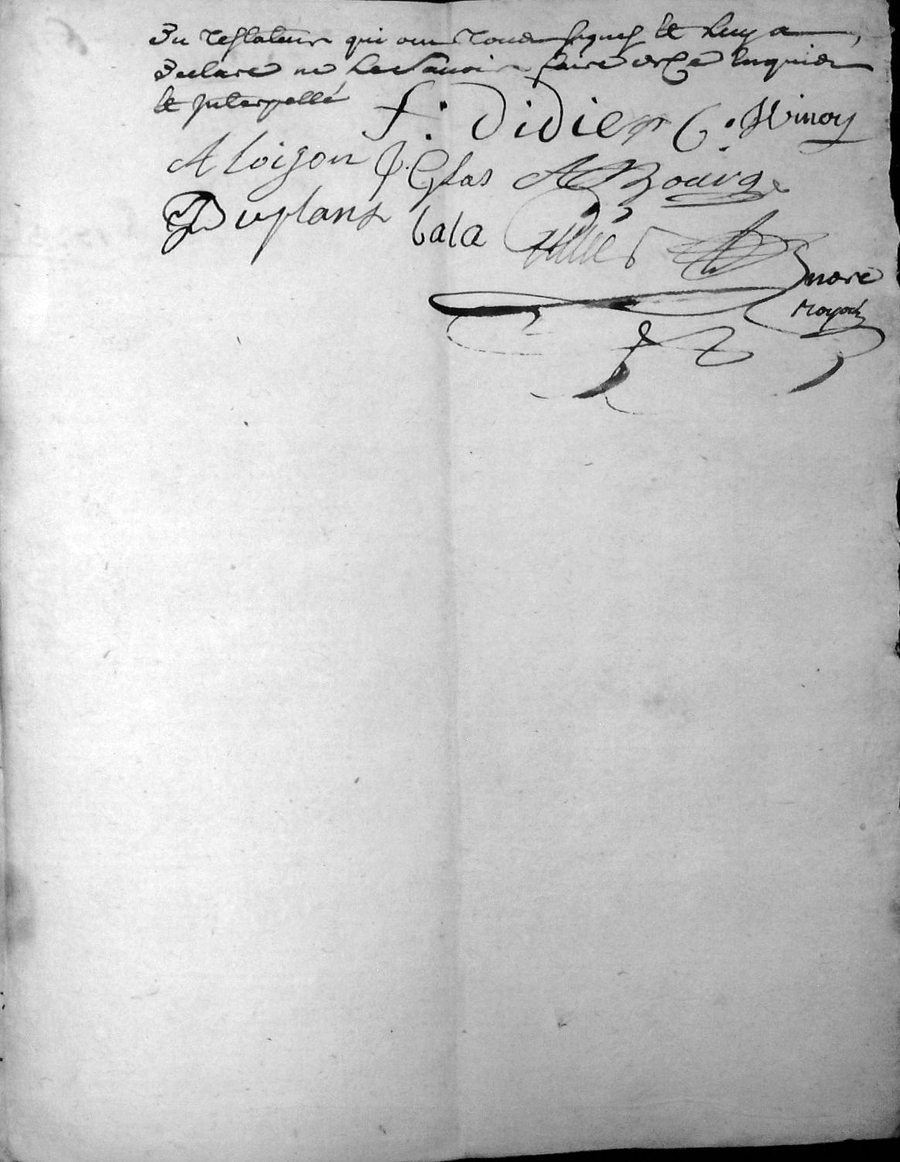 du testateur qui ont tous signes et luy a
declare ne le scavoir faire de ce enquis
et interpellé
f: Didier C: Winoy
A loison J Glas A Bourg
Duplans Lala